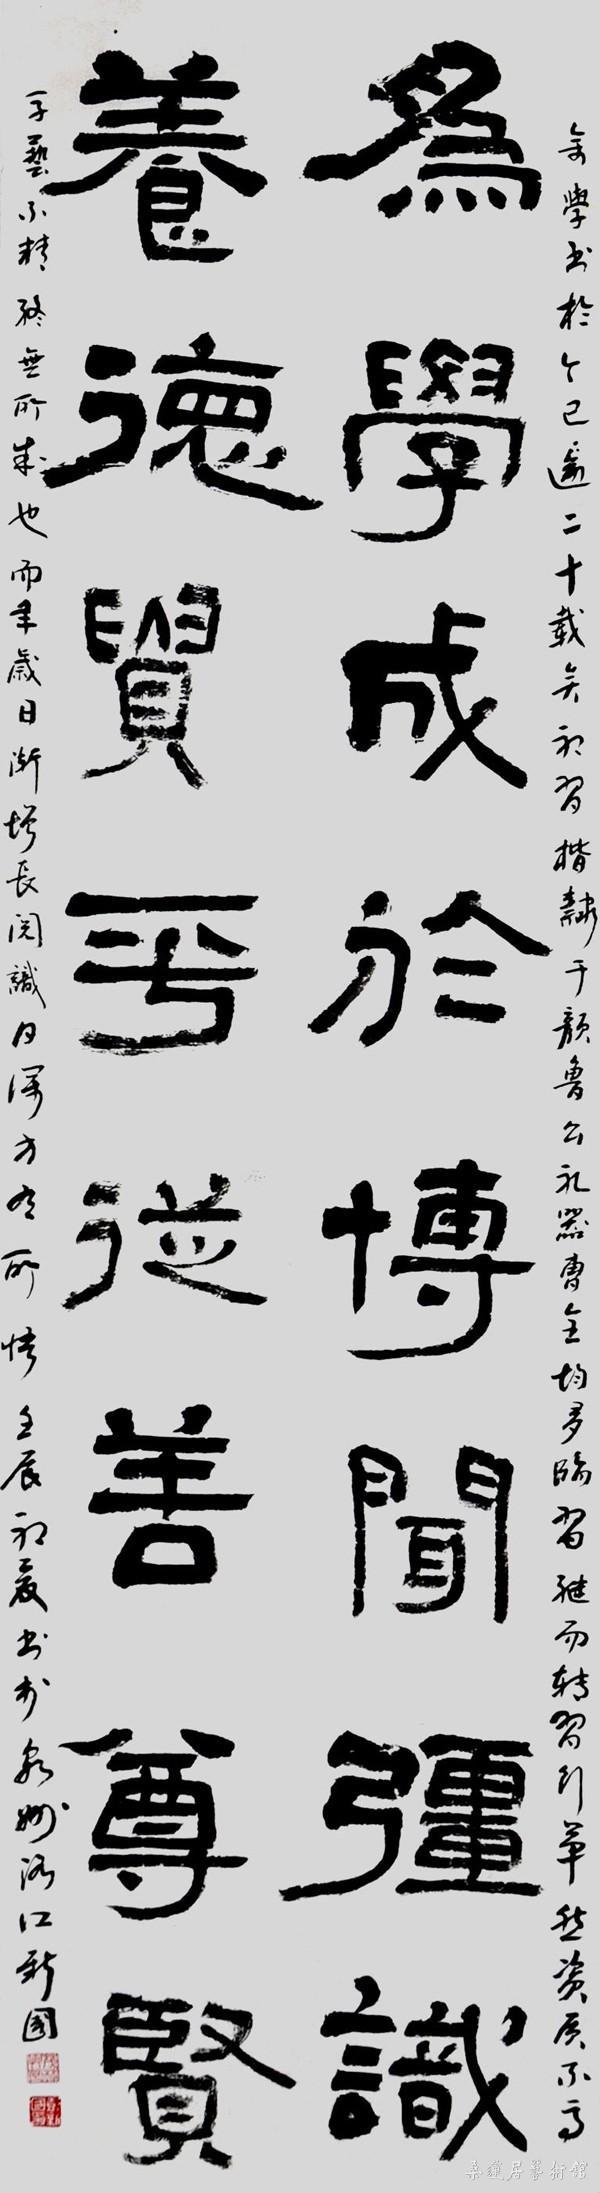 余學書於今已逾二十載矣初習楷隸于顏魯公礼器曹全均多臨習繼而轉習行草然資質不高
為學成於博聞彊識
養德貴乎從善尊賢
藝不精終無所成也而年歲日漸增長閱識日深方有所悟壬辰初夏書於泉州洛江新國
桑蓮居藝術館